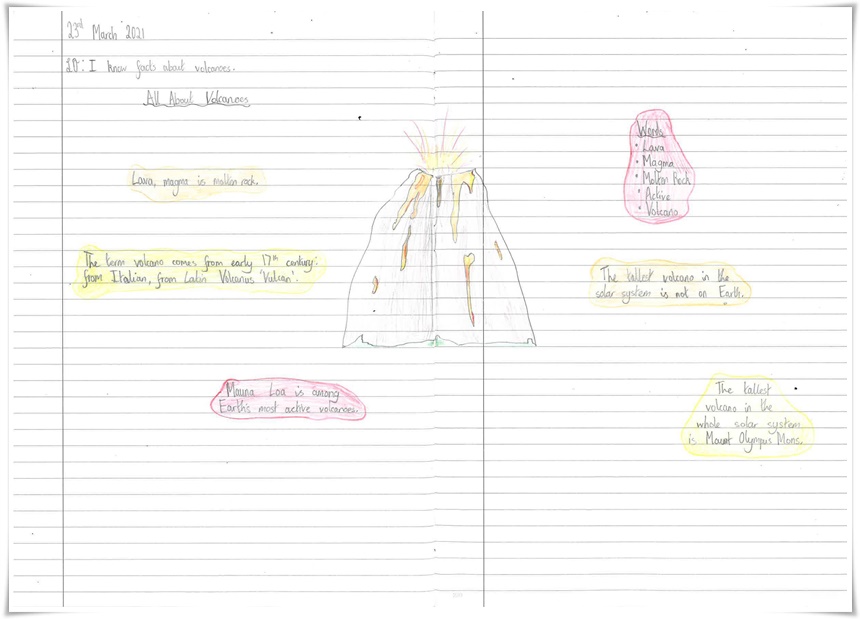 23rd March 2021
LO: I know facts about volcanoes.
All About Volcanoes
Lava, magma is molten rock.
The term volcano comes from early 17th century:
from Italian, from Latin Volcanus 'Vulcan'.
Mauna Loa is among
Earth's most active volcanoes.
Words
• Lava
• Magma
• Molten Rock
• Active
• Volcano
The tallest volcano in the
solar system is not on Earth.
The tallest
volcano in the
whole solar system
is Mount Olympus Mons.